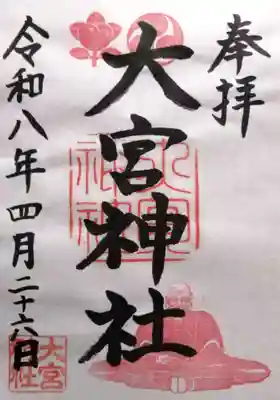 奉拝
大宮神社
令和八年四月二十六日
大宮神社
大宮社